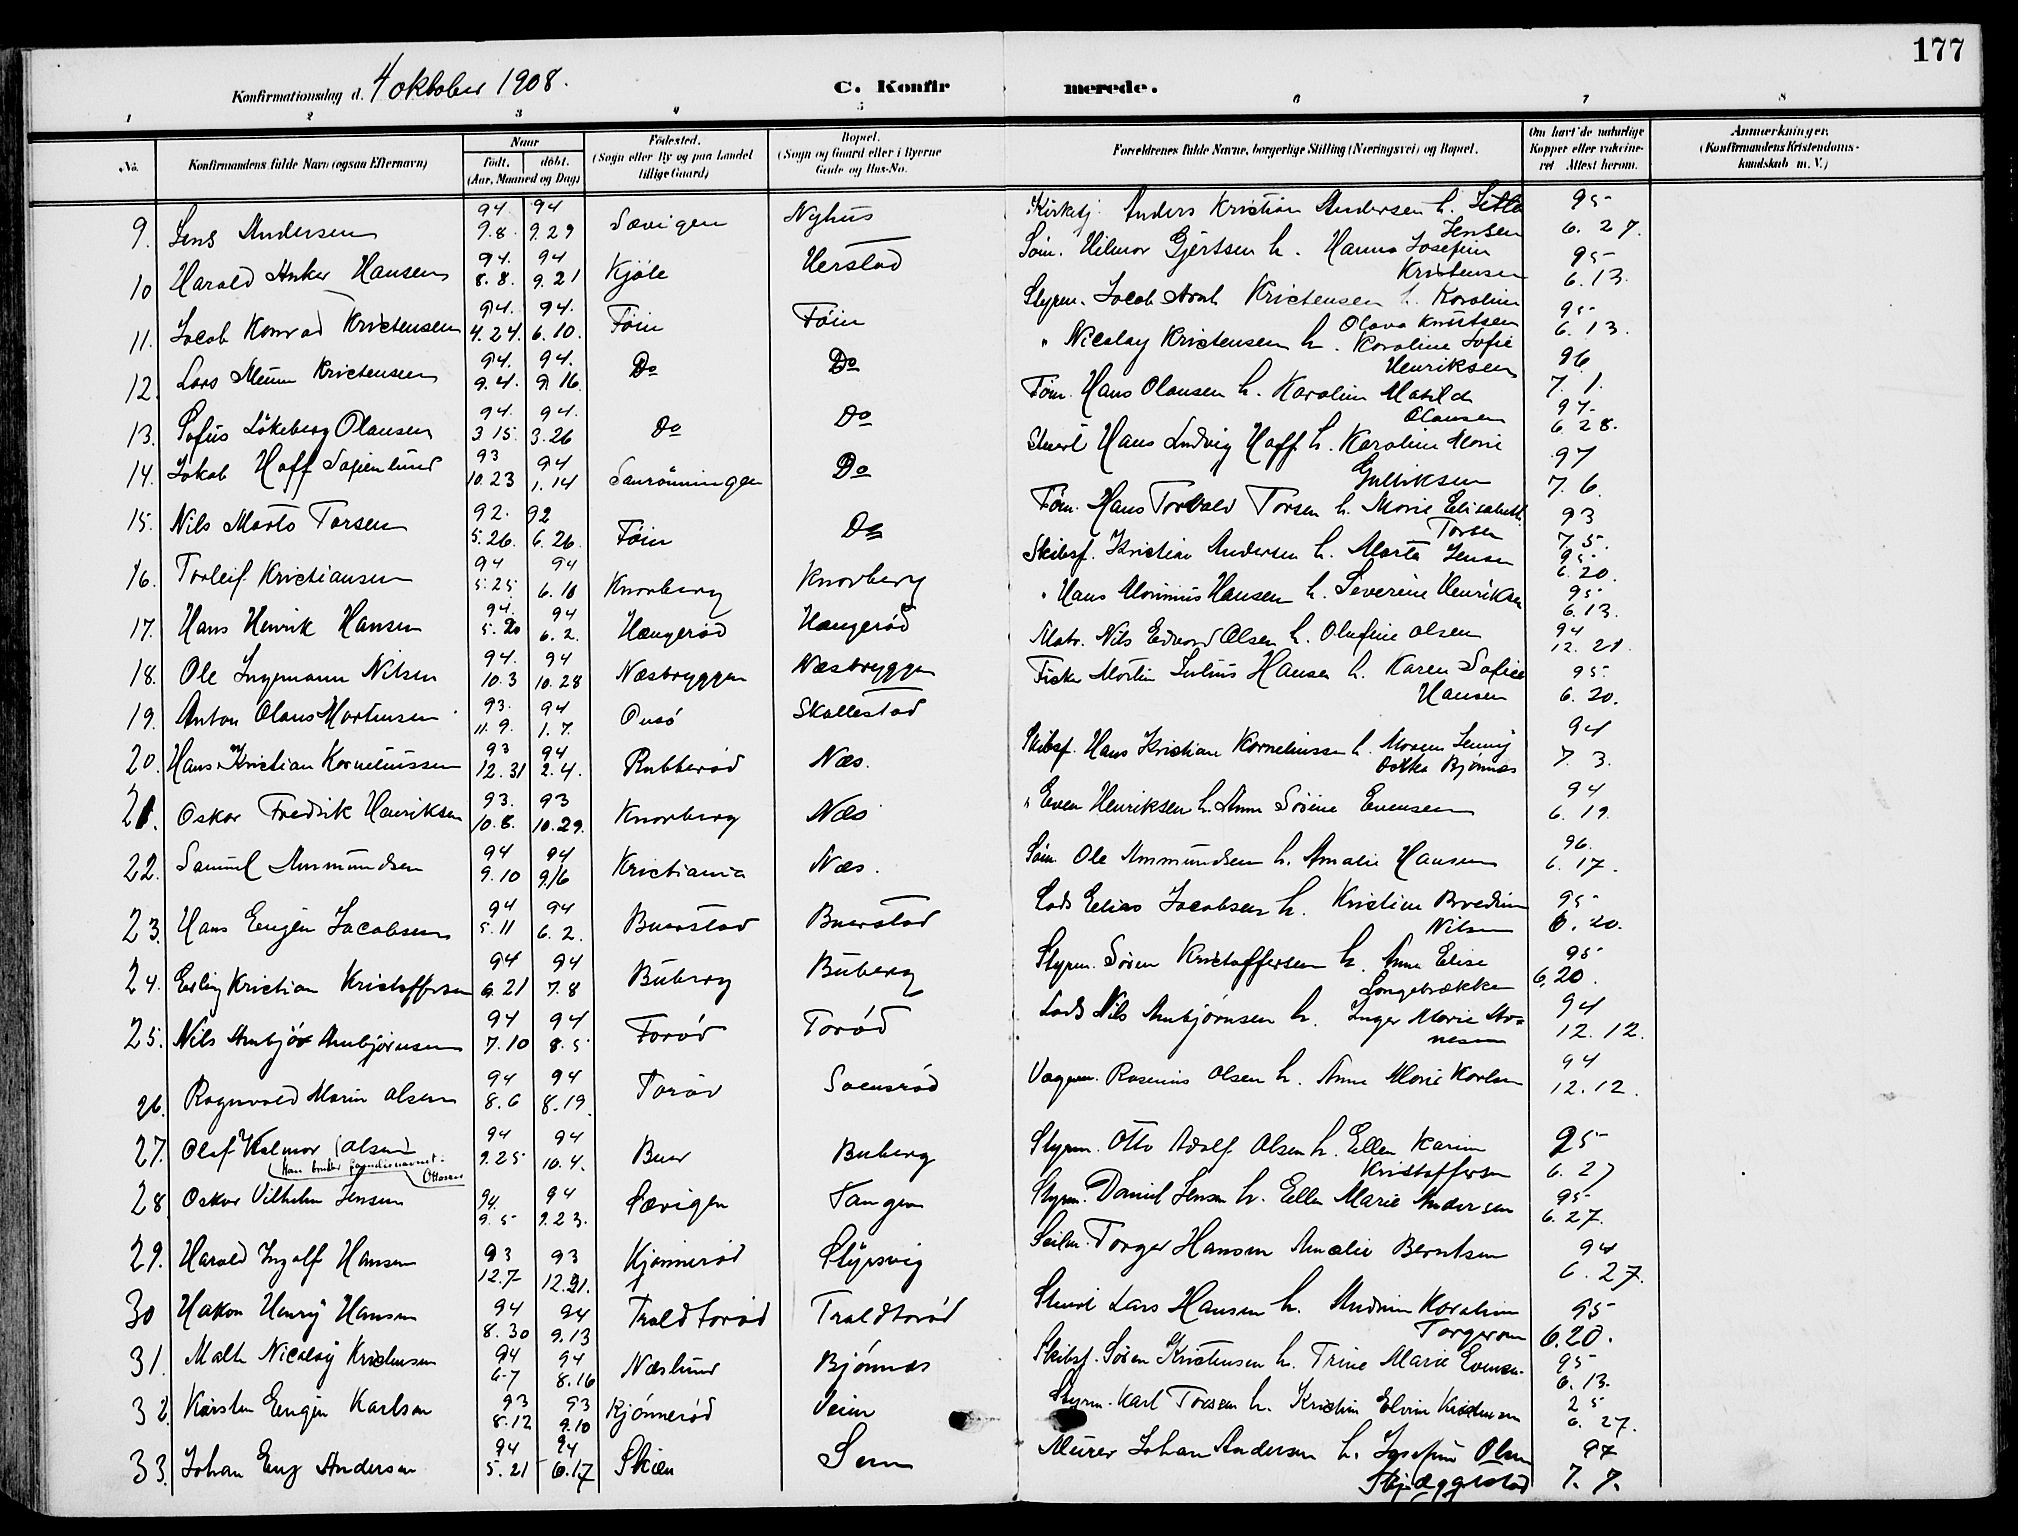 177
Konfirmationsdag d. 4 oktober 1908.
C. Konfirmerede.
1 2 3 4 5 6 7 8
No.
Konfirmandens fulde Navn (ogsaa Efternavn)
Naar
født. døbt.
(Aar, Maaned og Dag)
Fødested.
(Sogn eller By og paa Landet
tillige Gaard)
Bopæl.
(Sogn og Gaard eller i Byerne
Gade og Hus-No.
Forældrenes fulde Navne, borgerlige Stilling (Næringsvei) og Bopæl.
Om havt de naturlige
Kopper eller vakcine-
ret Attest herom.
Anmærkninger.
(Konfirmandens Kristendoms-
kundskab m. V.)
9. Jens Andersen 94. 9.8. 94 9.29 Sævigen Nyhus Kirketj. Anders Kristian Andersen h. Jensen 95 6.27.
10 Harald Anker Hansen 94. 8.8. 94 9.21 Kjøle Herstad Søm. Hilmar Gjertsen h. Hanna Josefine Kristensen 95 6.13.
11. Jacob Konrad Kristensen 94. 4.24. 94. 6.10. Føin Føin Styrm. Jacob Kristensen h. Karoline Olava Knutsen 95 6.13.
12. Lars Meum Kristensen 94. 9.4. 94. 9.16. Do Do " Nicolay Kristensen h. Karoline Sofie Henriksen 96 7.1.
13. Sofus Løkeberg Olausen 94. 3.15. 94. 3.26 Do Do Tøm. Hans Olausen h. Karolin Matilde Olausen 94. 6.28.
14. Jakob Hoff Sofienlund 93 10.23 94 1.14 Sanrønningen Do Stuert Hans Ludvig Hoff h. Karoline Marie Gulliksen 97 7.6.
15. Nils Marto Torsen 92. 5.26. 92 6.26. Føin Do Tøm. Hans Torvald Torsen h. Marie Elisabeth Torsen 93 7.5.
16. Torleif Kristiansen 94 5.25 94 6.10 Knarberg Knarberg Skibsf. Kristian Andersen h. Marta Jensen 95 6.20.
17. Hans Henrik Hansen 94. 5.20 94 6.2. Hængerød Hængerød " Hans Hansen h. Severine Henriksen 95 6.13.
18. Ole Ingemann Nilsen 94. 10.3 94 10.28 Næsbryggen Næsbryggen Matr. Nils Edvard Olsen h. Olufine Olsen 94 12.21.
19. Anton Olaus Martinsen 93. 11.9. 94 1.7. Ousø Skallestad Fisker Martin Julius Hansen h. Karen Sofie Hansen 95 6.20.
20. Hans Kristian Kornelinssen 93 12.31 94 2.4. Rubberød Næs. Skibsf. Hans Kristian Kornelinssen h. Maren Jenny Bjønnæs 94 7.3.
21. Oskar Fredrik Henriksen 93. 10.8. 93 10.29. Knarberg Næs " Even Henriksen h. Anne Severine Evensen 94 6.19.
22. Samuel Ammundsen 94 9.10 94 9.16 Kristiania Næs. Søm. Ole Ammundsen h. Amalie Hansen 96. 6.17.
23. Hans Eugen Jacobsen 94 5.11 94 6.2. Buerstad Buerstad Lods Elias Jacobsen h. Kristine Nilsen 95 6.20.
24. Erling Kristian Kristoffersen 94 6.21 94 7.8 Buberg Buberg Styrm. Søren Kristoffersen h. Anne Elise Langebrække 95 6.20.
25. Nils Ambjør Ambjørnsen 94 7.10 94 8.5 Torød Torød Lods Nils Ambjørnsen h. Inger Marie 94 12.12.
26. Ragnvald Marin Olsen 94 8.6 94 8.19. Torød Soensrød Vognm. Rasmus Olsen h. Anna Marie Karlsen 94 12.12.
27. Olaf Halmar (Olsen) 94 9.25 94 10.4. Buer Buberg Styrm. Otto Adolf Olsen h. Ellen Karine Kristoffersen 95 6.27
(Han bruker familienavnet. Ottosen
28. Oskar Vilhelm Jensen 94. 9.5 94 9.23. Sævigen Tangen Styrm. Daniel Jensen h. Ellen Marie Andersen 95 6.27.
29. Harald Ingolf Hansen 93 12.7 93 12.21. Kjønnerød Styrsvig Seilm. Torger Hansen Amalie Berntsen 94 6.27.
30 Hakon Henry Hansen 94 8.30 94 9.13 Traldtorød Traldtorød Stuert Lars Hansen h. Andrine Karoline Torgersen 95 6.20.
31. Malth Nicolay Kristensen 94 6.7 94 8.16 Næslund Bjønnæs Skibsf. Søren Kristensen h. Trine Marie Evensen. 95 6.13.
32. Karsten Eugen Karlsen 93 8.12 93 9.10 Kjønnerød Veien Styrm. Karl Torsen h. Kristin Elvine Kristensen 25 6.27.
33. Johan Eug Andersen 94 5.21 94 6.17 Skien Sem Murer Johan Andersen h. Josefine Olsen Skjæggestad 97 7.7.